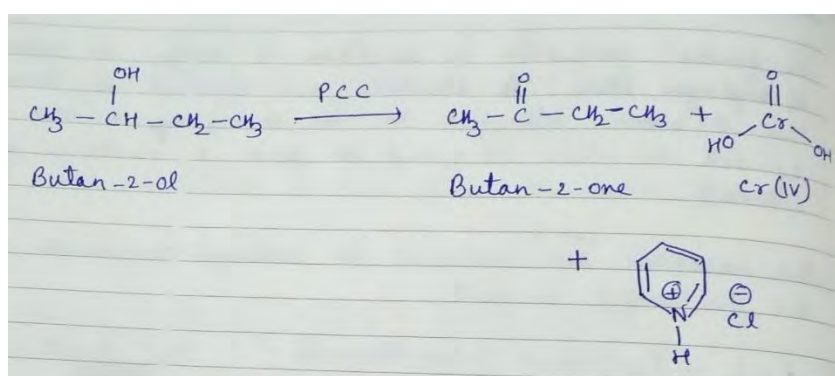 OH
O
O
CH3 – CH – CH2 – CH3 PCC CH3 – C – CH2 – CH3 + Cr
HO OH
Butan-2-ol Butan-2-one Cr(IV)
+ ⊕ ⊖
N Cl
H